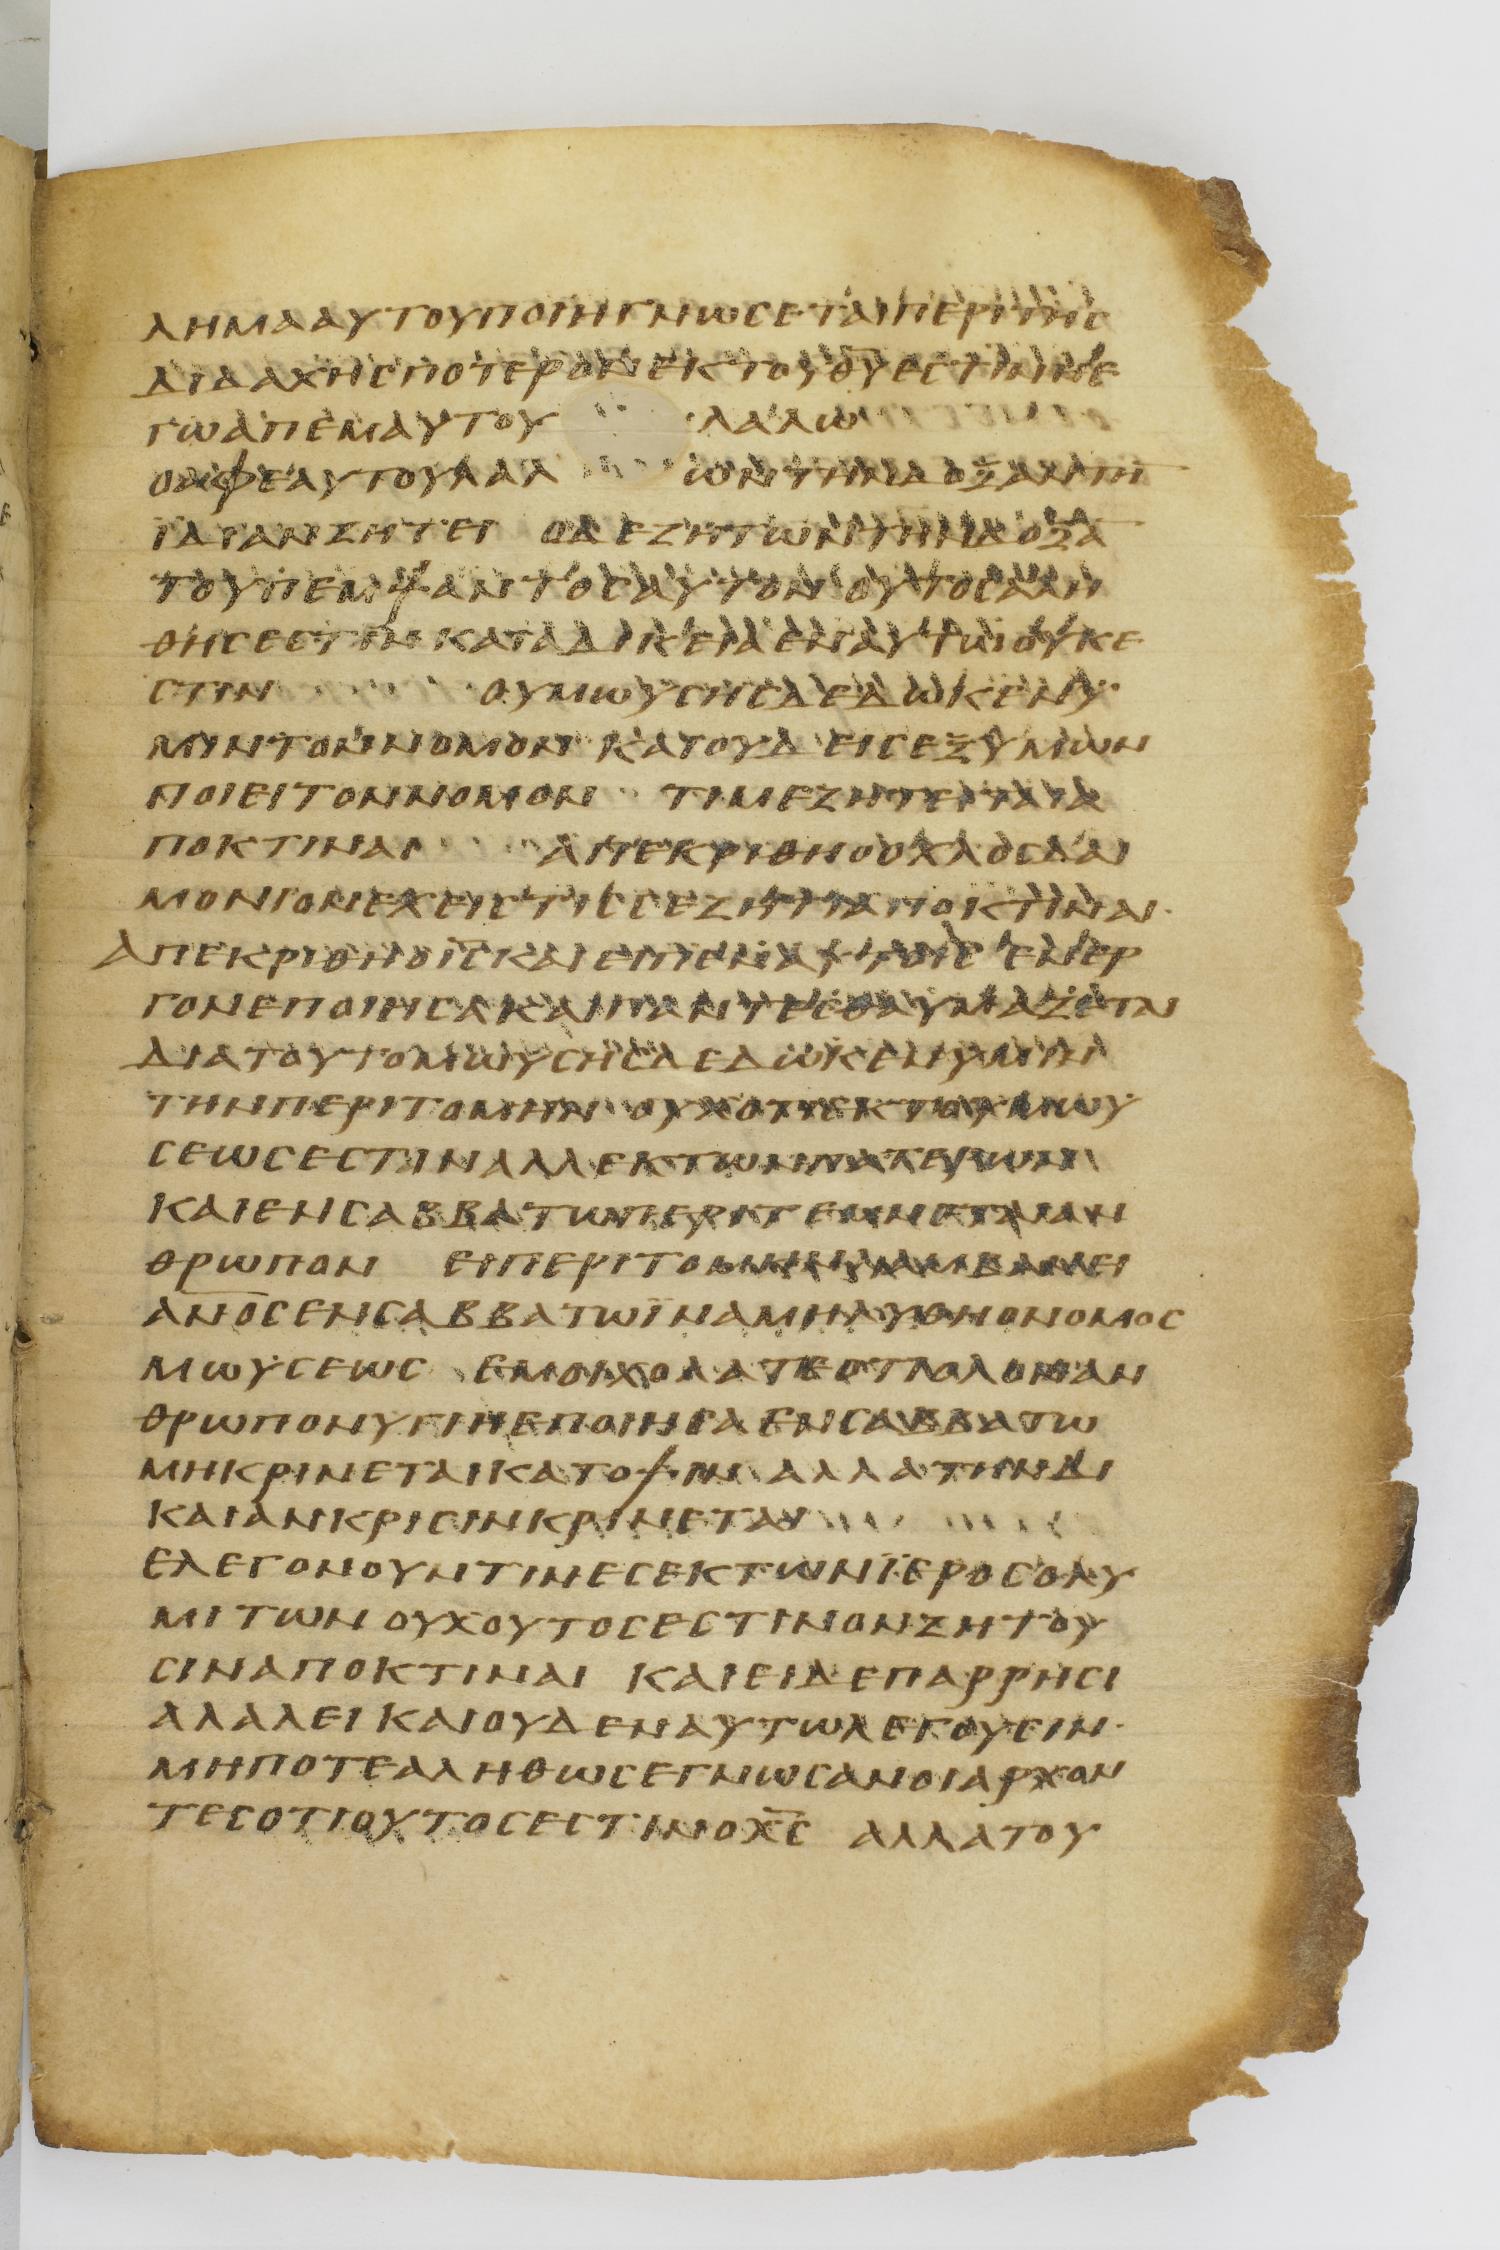 ΛΗΜΑΑΥΤΟΥΠΟΙΗΓΝΩΣΕΤΑΙΠΕΡΙΤΗΣ
ΔΙΔΑΧΗΣΠΟΤΕΡΟΝΕΚΤΟΥΘ̅Υ̅ΕΣΤΙΝΗΕ
ΓΩΑΠΕΜΑΥΤΟΥ ΛΑΛΩ
ΟΑΦΕΑΥΤΟΥΛΑΛ ΩΝΤΗΝΔΟΞΑΝΤΗ̅
ΙΔΙΑΝΖΗΤΕΙ ΟΔΕΖΗΤΩΝΤΗΝΔΟΞΑ̅
ΤΟΥΠΕΜΨΑΝΤΟΣΑΥΤΟΝ ΟΥΤΟΣΑΛΗ
ΘΗΣΕΣΤΙΝ ΚΑΙΑΔΙΚΕΙΑΕΝΑΥΤΩΙΟΥΚΕ
ΣΤΙΝ ΟΥΜΩΥΣΗΣΔΕΔΩΚΕΝΥ
ΜΙΝΤΟΝΝΟΜΟΝ ΚΑΙΟΥΔΕΙΣΕΞΥΜΩΝ
ΠΟΙΕΙΤΟΝΝΟΜΟΝ ΤΙΜΕΖΗΤΕΙΤΑΙΑ
ΠΟΚΤΙΝΑΙ ΑΠΕΚΡΙΘΗΟΟΧΛΟΣΔΑΙ
ΜΟΝΙΟΝΕΧΕΙΣΤΙΣΣΕΖΗΤΙΑΠΟΚΤΙΝΑΙ
ΑΠΕΚΡΙΘΗΟΙ̅Σ̅ΚΑΙΕΙΠΕΝΑΥΤΟΙΣ ΕΝΕΡ
ΓΟΝΕΠΟΙΗΣΑΚΑΙΠΑΝΤΕΣΘΑΥΜΑΖΕΤΑΙ
ΔΙΑΤΟΥΤΟΜΩΥΣΗΣΔΕΔΩΚΕΝΥΜΙΝ
ΤΗΝΠΕΡΙΤΟΜΗΝ ΟΥΧΟΤΙΕΚΤΟΥΜΩΥ
ΣΕΩΣΕΣΤΙΝΑΛΛΕΚΤΩΝΠΑΤΕΡΩΝ
ΚΑΙΕΝΣΑΒΒΑΤΩΠΕΡΙΤΕΜΝΕΤΑΙΑΝ
ΘΡΩΠΟΝ ΕΙΠΕΡΙΤΟΜΗΝΛΑΜΒΑΝΕΙ
ΑΝ̅Ο̅Σ̅ΕΝΣΑΒΒΑΤΩΪΝΑΜΗΛΥΘΗΟΝΟΜΟΣ
ΜΩΥΣΕΩΣ ΕΜΟΙΧΟΛΑΤΕΟΤΙΟΛΟΝΑΝ
ΘΡΩΠΟΝΥΓΙΗΕΠΟΙΗΣΑΕΝΣΑΒΒΑΤΩ
ΜΗΚΡΙΝΕΤΑΙΚΑΤΟΨΙΝ ΑΛΛΑΤΗΝΔΙ
ΚΑΙΑΝΚΡΙΣΙΝΚΡΙΝΕΤΑΙ
ΕΛΕΓΟΝΟΥΝΤΙΝΕΣΕΚΤΩΝΪΕΡΟΣΟΛΥ
ΜΙΤΩΝ ΟΥΧΟΥΤΟΣΕΣΤΙΝΟΝΖΗΤΟΥ
ΣΙΝΑΠΟΚΤΙΝΑΙ ΚΑΙΕΙΔΕΠΑΡΡΗΣΙ
ΑΛΑΛΕΙΚΑΙΟΥΔΕΝΑΥΤΩΛΕΓΟΥΣΙΝ
ΜΗΠΟΤΕΑΛΗΘΩΣΕΓΝΩΣΑΝΟΙΑΡΧΟΝ
ΤΕΣΟΤΙΟΥΤΟΣΕΣΤΙΝΟΧ̅Σ̅ ΑΛΛΑΤΟΥ